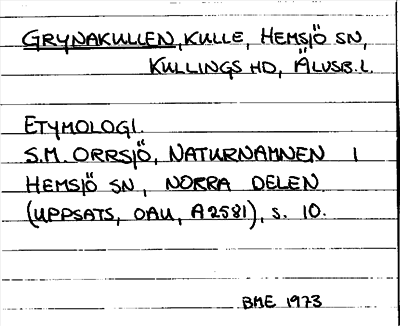 GRYNAKULLEN, KULLE, HEMSJÖ SN,
KULLINGS HD, ÄLVSB. L.
ETYMOLOGI.
S.M. ORRSJÖ, NATURNAMNEN I
HEMSJÖ SN, NORRA DELEN.
(UPPSATS, OAU, A2581), S. 10.
BME 1973